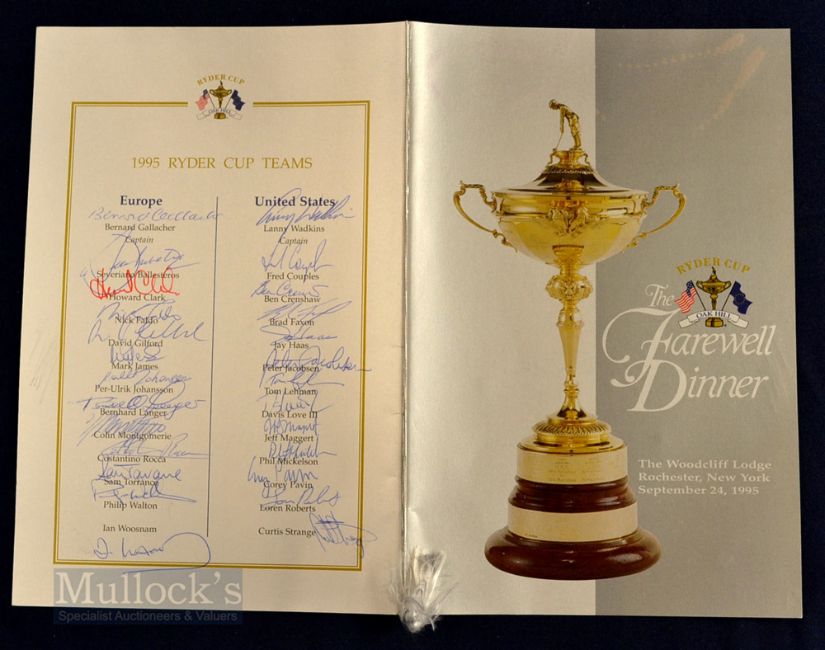 RYDER CUP
OAK HILL
1995 RYDER CUP TEAMS
Europe
Bernard Gallacher
Captain
Severiano Ballesteros
Howard Clark
Nick Faldo
David Gilford
Mark James
Per-Ulrik Johansson
Bernhard Langer
Colin Montgomerie
Costantino Rocca
Sam Torrance
Philip Walton
Ian Woosnam
United States
Lanny Wadkins
Captain
Fred Couples
Ben Crenshaw
Brad Faxon
Jay Haas
Peter Jacobsen
Tom Lehman
Davis Love III
Jeff Maggert
Phil Mickelson
Corey Pavin
Loren Roberts
Curtis Strange
RYDER CUP
OAK HILL
The
Farewell
Dinner
The Woodcliff Lodge
Rochester, New York
September 24, 1995
Mullock's
Specialist Auctioneers & Valuers